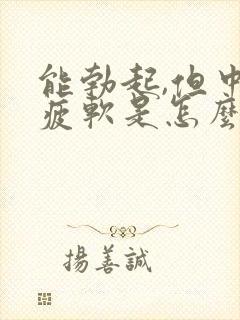 能勃起,但中
疲軟是怎麼
揚善誠